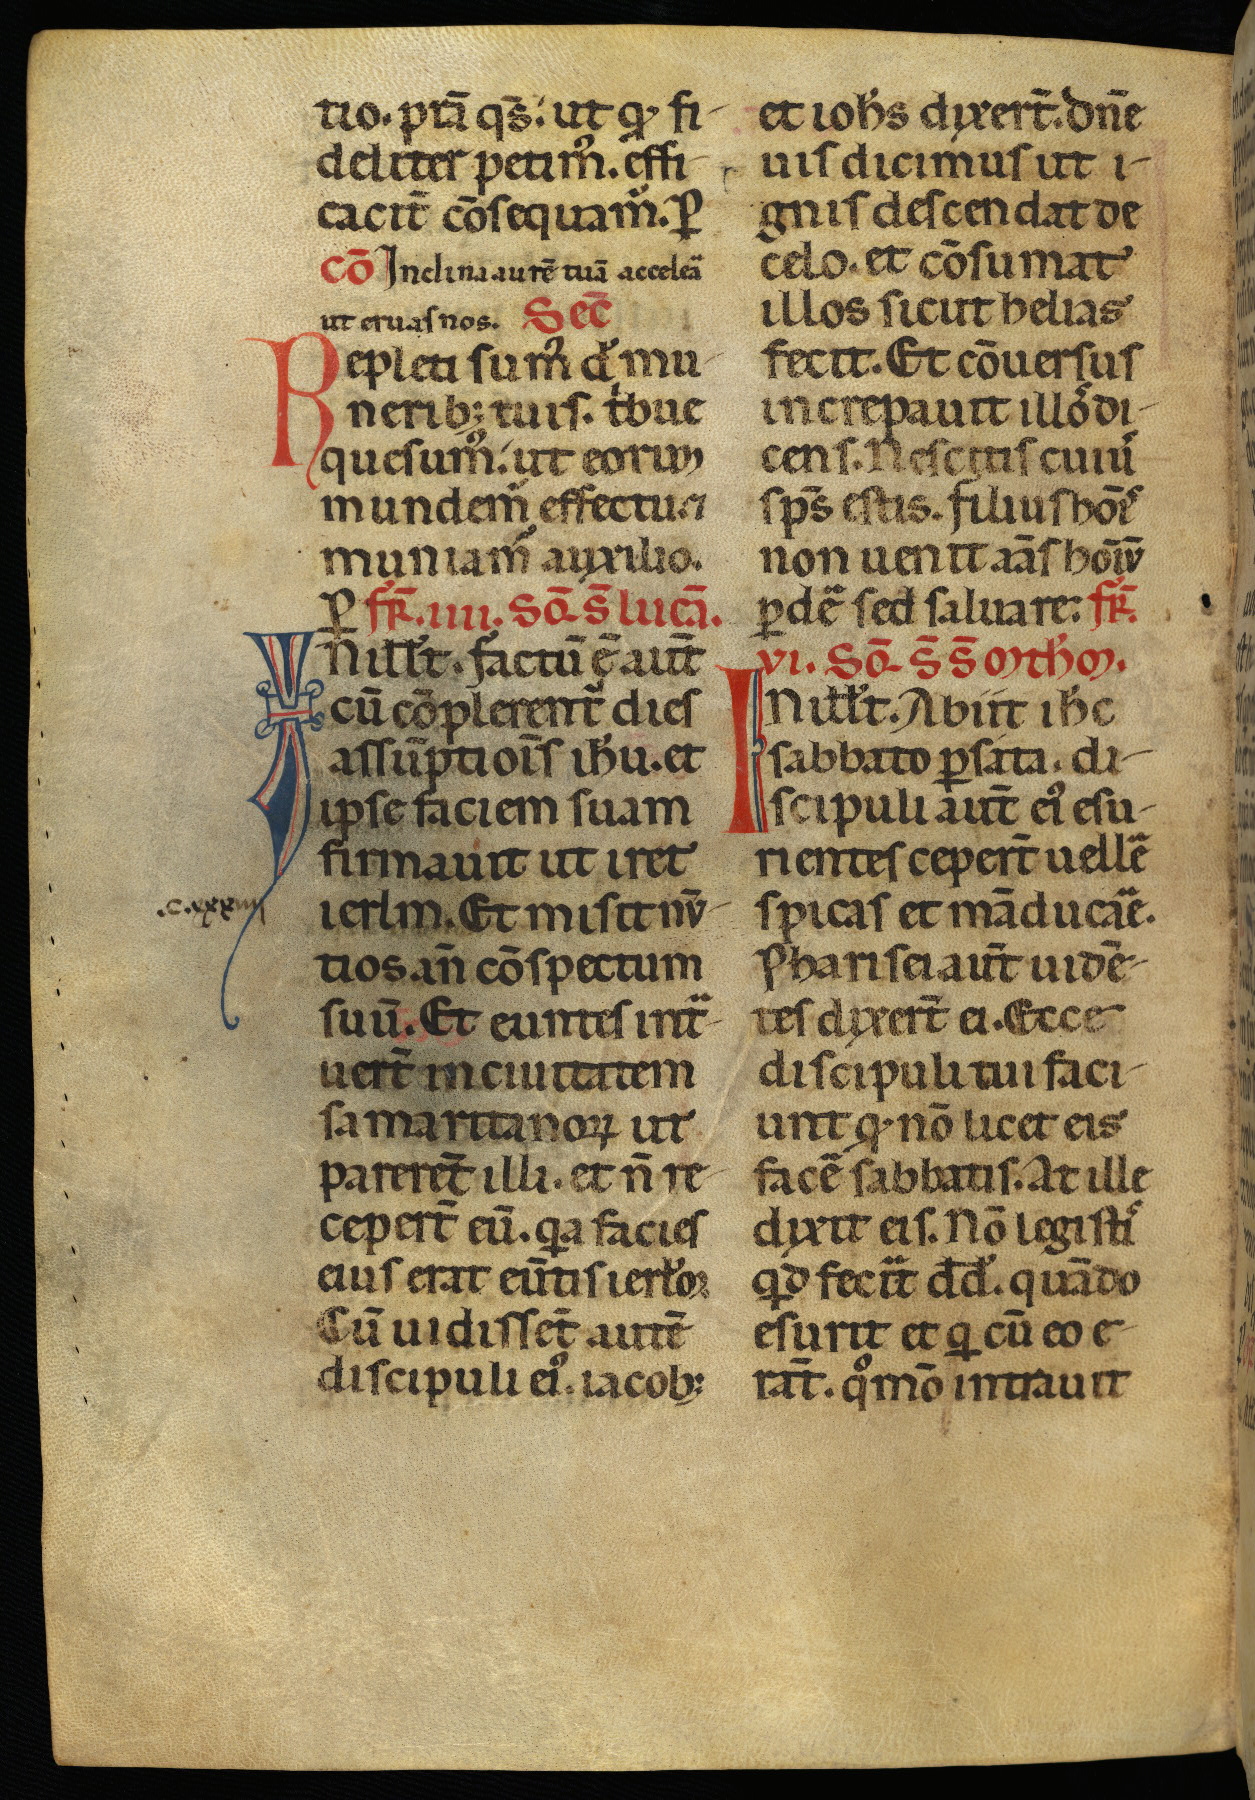 tio. p̄ta q̄s: ut qͦ fi-
deliter petimꝰ. effi-
cacit̄ cōsequam̃. P̄
cō Inclina aurē tuā acceleā
ut eruas nos. Sec̄
Repleti sumꝰ dñe mu-
nerib; tuis. tⁱbue
quesumꝰ: ut eorum
mundem̃ effectu ⁊
muniam̃ auxilio.
P̄ fr̄. iiii. Sc̄d. s̄. lucā.
In ill̄ t̄. factū ē aut̄
cū cōplerent̃ dies
assūptiois̄ ih̄u. et
ipse faciem suam
firmauit ut iret
ierlm̄. Et misit nū-
.c.xxxiiii
tios an̄ cōspectum
suū. Et euntes intᵃ-
uert̄ in ciuitatem
samaritanoꝝ ut
parerēt illi. et n̄ re-
cepert̄ eū. qͥa facies
eius erat eūtis ierl̄oꝝ
Cū uidissēt autē
discipuli eiꝰ. iacob;
et ioh̄s dixert̄. Dn̄e
uis dicimus ut i-
gnis descendat de
celo. et cōsumat
illos sicut helias
fecit. Et cōuersus
increpauit illoˢ di-
cens. Nescitis cuiuˢ
sp̄s estis. filius hōīs
non uenit aīas hoīū
ꝑdē sed saluare. fr̄.
vi. Sc̄d. s̄. s̄. mth̄m.
In ill̄ t̄. Abiit ih̄c
sabbato ꝑ sata. di-
scipuli aut̄ eiꝰ esu-
rientes cepert̄ uellē
spicas et māducāe.
Pharisei aut̄ uidē-
tes dixert̄ ei. Ecce
discipuli tui faci-
unt qͦ nō licet eis
facē sabbatis. At ille
dixit eis. Nō legistiˢ
qͥd fecit dd̄. quādo
esurit et qͥ cū eo e-
rāt. qͦmō intrauit